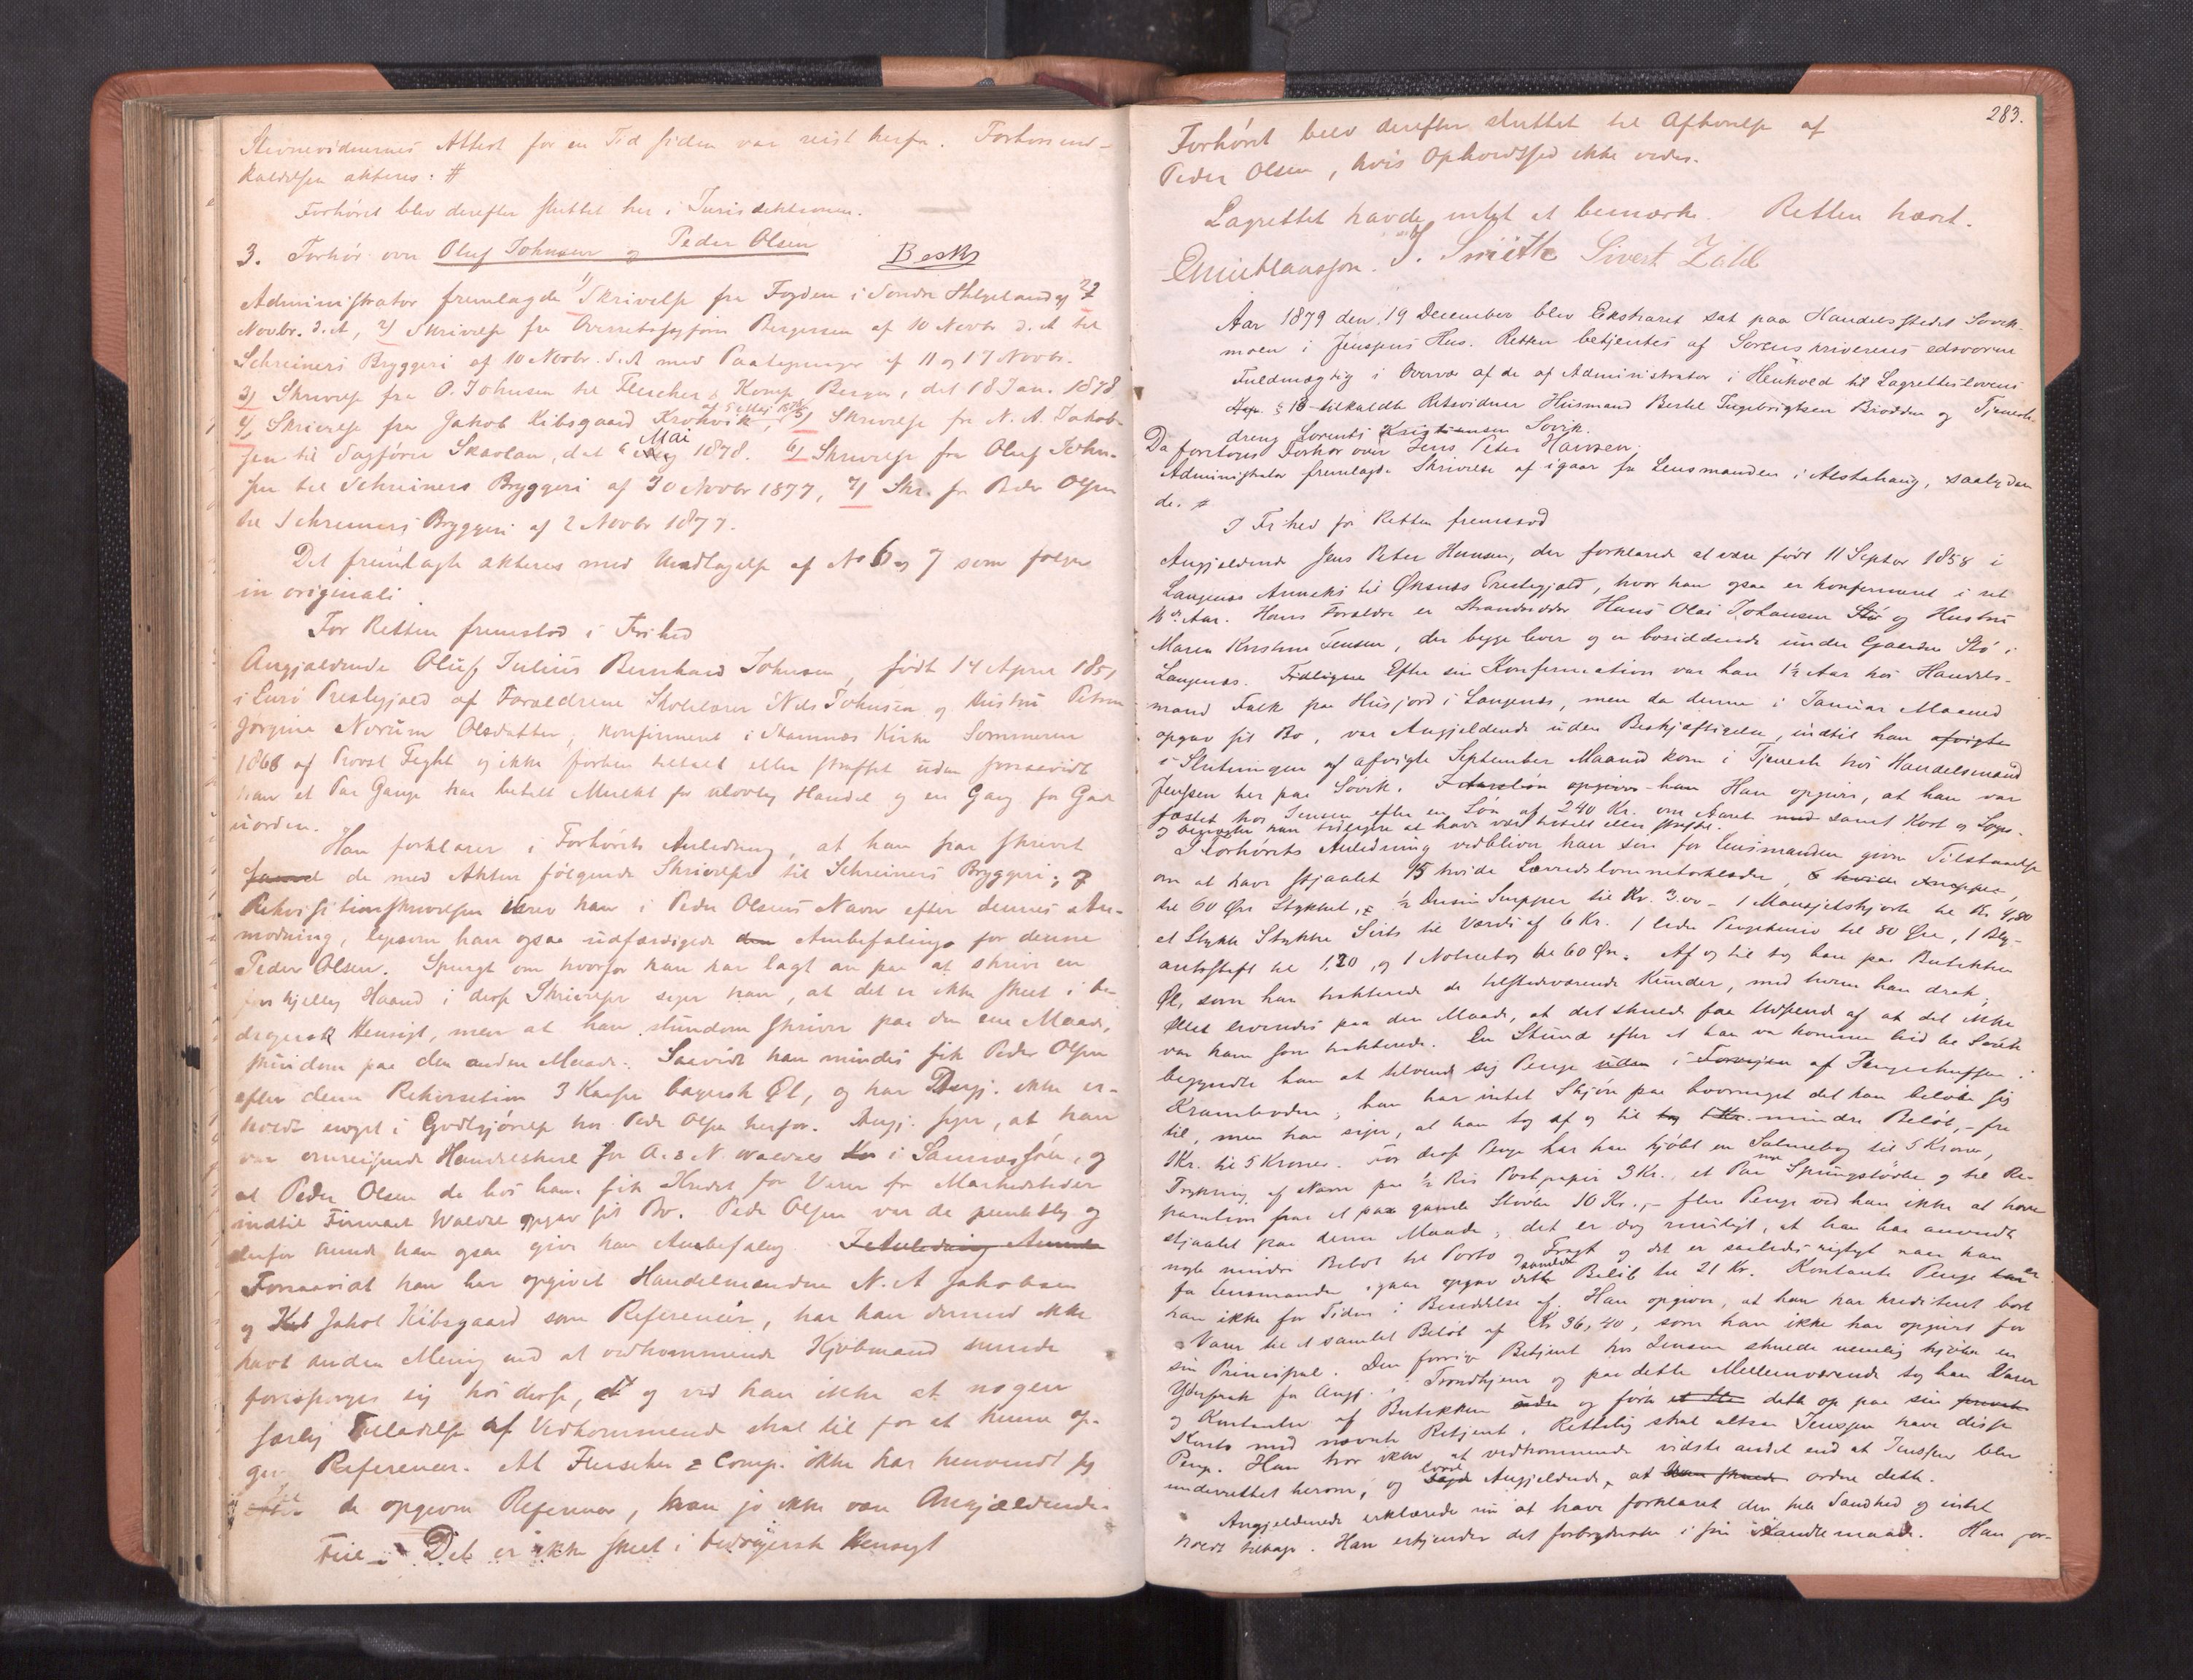 Stevnevidnernes Attest for en Tid siden var reist herfra. Forhørsind-
kaldelsen akteres: #
Forhøret blev derefter sluttet her i Jurisdiktionen.
3. Forhør over Oluf Johnsen og Peder Olsen Besk
Administrator fremlagde 1) Skrivelse fra Fogden i Søndre Helgeland af 22
Novbr. d. A, 2) Skrivelse fra Overretssagfører Bergersen af 10 Novbr d. A til
Schreiners Bryggeri af 10 Novbr. d. A med Paategninger af 11 og 17 Novbr.
3) Skrivelse fra O. Johnsen til Fleischer & Komp Bergen, dat 18 Jan. 1878
4) Skrivelse fra Jakob Kibsgaard Krokvik, af 5 Mai 1878 5) Skrivelse fra N. A. Jakob-
sen til Sagfører Skavlan, dat 6 Mai 1878. 6) Skrivelse fra Oluf John-
sen til Schreiners Bryggeri af 30 Novbr 1877, 7) Skr. fra Peder Olsen
til Schreiners Bryggeri af 2 Novbr 1877.
Det fremlagte akteres med Undtagelse af No 6 og 7 som følger
in originali.
For Retten fremstod i Frihed
Angjældende Oluf Julius Bernhard Johnsen, født 14 April 1851
i Lurø Prestegjæld af Forældrene Skolelærer Nils Johnsen og Hustru Petra
Jørgine Norum Olsdatter, konfirmeret i Stamnæs Kirke Sommeren
1868 af Provst Fight og ikke forhen tiltalt eller straffet uden forsaavidt
han et Par Gange har betalt Mulkt for ulovlig Handel og en Gang for Gade
uorden.
Han forklarer i Forhørets Anledning, at han har skrevet
de med Akten følgende Skrivelser til Schreiners Bryggeri;
Rekvisitionsskrivelsen skrev han i Peder Olsens Navn efter dennes An-
modning, ligesom han ogsaa udfærdigede Anbefaling for denne
Peder Olsen. Spurgt om hvorfor han har lagt an paa at skrive en
forskjellig Haand i disse Skrivelser siger han, at det er ikke skeet i be-
dragersk Hensigt, men at han stundom skriver paa den ene Maade,
stundom paa den anden Maade. Saavidt han mindes fik Peder Olsen
efter denne Rekvisition 3 Kasser bayersk Øl, og har Angj. ikke er-
holdt noget i Godtgjørelse hos Peder Olsen herfor. Angj. siger, at han
var omreisende Handelskarl for A. & N. Waldes i Sannessjøen, og
at Peder Olsen da hos ham fik Kredit for Varer fra Markedstider
indtil Firmaet Walde opgav sit Bo. Peder Olsen var da punktlig og
derfor kunde han ogsaa give ham Anbefaling. I Anledning
Forsaavidt han har opgivet Handelsmændene N. A Jakobsen
og Jakob Kibsgaard som Referencer, har han dermed ikke
havt anden Mening end at vedkommende Kjøbmand kunde
forespørges sig hos disse, og ved han ikke at nogen
særlig Tilladelse af Vedkommende skal til for at kunne op-
give Referencer. At Fleischer & Comp. ikke har henvendt sig
til de opgivne Referencer, kan jo ikke være Angjældendes
Feil. Det er ikke skeet i bedragersk Hensigt
283.
Forhøret blev derefter sluttet til Afhørelse af
Peder Olsen, hvis Opholdssted ikke vides.
Lagrettet havde intet at bemærke. Retten hævet.
Emil Klausson. J. Smith Sivert Zahl
Aar 1879 den 19 December blev Ekstraret sat paa Handelsstedet Søvik-
moen i Jenssens Hus. Retten betjentes af Sorenskriverens edsvorne
Fuldmægtig i Overvær af de af Administrator i Henhold til Lagrettelovens
§ 18 tilkaldte Retsvidner Husmand Bertel Ingebrigtsen Brodden og Tjeneste-
dreng Lorents Kristiansen Søvik.
Da foretoges Forhør over Jens Peter Hansen.
Administrator fremlagde Skrivelse af igaar fra Lensmanden i Alstahaug, saalyden
de. #
I Frihed for Retten fremstod
Angjældende Jens Peter Hansen, der forklarede at være født 11 Septbr 1858 i
Langenæs Anneks til Øksnæs Prestegjæld, hvor han ogsaa er konfirmeret i sit
16de Aar. Hans Forældre er Strandsidder Hans Olai Johansen Stø og Hustru
Maren Kristine Jensen, der begge lever og er bosiddende under Gaarden Stø i
Langenæs. Tidligere Efter sin Konfirmation var han 1½ Aar hos Handels-
mand Falk paa Husjord i Langenæs, men da denne i Januar Maaned
opgav sit Bo, var Angjeldende uden Beskjæftigelse, indtil han afvigte
i Slutningen af afvigte September Maaned kom i Tjeneste hos Handelsmand
Jenssen her paa Søvik. I Aarsløn opgiver han Han opgiver, at han var
fæstet hos Jenssen efter en Løn af 240 Kr. om Aaret med samt Kost og Logi.
og benegter han tidligere at have været tiltalt eller straffet.
I Forhørets Anledning vedbliver han sin for Lensmanden givne Tilstaaelse
om at have stjaalet 15 hvide Lærredslommetørklæder, 6 hvide Knapper,
til 60 Øre Stykket, ½ Dusin Snipper til Kr. 3.00 - 1 Mansjetskjorte til Kr 4,80
et Stykke Stykke Sirts til Værdi af 6 Kr. 1 liden Pengekniv til 80 Øre, 1 Bly-
antsstift til 1,20, og 1 Notitsbog til 60 Øre. Af og til tog han paa Butikken
Øl, som han trakterede de tilstedeværende Kunder, med hvem han drak;
Øllet leveredes paa den Maade, at det skulde faa Udseende af at det ikke
var ham som trakterede. En Stund efter at han var kommen hid til Søvik
begyndte han at tilvende sig Penge uden i Forveien af Pengeskuffen i
Kramboden; han har intet Skjøn paa hvormeget det kan beløbe sig
til, men han siger, at han tog af og til tog mindre Beløb, – fra
1Kr. til 5 Kroner. For disse Penge har han kjøbt en Salmebog til 5 Kroner,
Trykning af Navn paa ½ Ris Postpapir 3 Kr., et Par nye Springstøvler og til Re-
paration fra et par gamle Støvler 10 Kr., – flere Penge ved han ikke at have
stjaalet paa denne Maade; det er dog muligt, at han har anvendt
nogle mindre Beløb til Porto og Fragt og det er saaledes rigtigt naar han
for Lensmanden igaar opgav det samlede Beløb til 21 Kr. Kontante Penge er
han ikke for Tiden i Besiddelse af. Han opgiver, at han har krediteret bort
Varer til et samlet Beløb af Kr 36,40, som han ikke har opgivet for
sin Principal. Den forrige Betjent hos Jenssen skulde nemlig kjøbe en
for Angj. i Trondhjem og paa dette Mellemværende tog han Varer
og Kontanter af Butikken og førte dette op paa sin privat
Konto med nævnte Betjent. Rettelig skal altsaa Jenssen have disse
Penge. Han tror ikke at vedkommende vidste andet end at Jenssen blev
underrettet herom, og lovede Angjeldende, at ordne dette.
Angjeldende erklærede nu at have forklaret den hele Sandhed og intet
holdt tilbage. Han erkjender det forbryderske i sin Handlemaade. Han for-